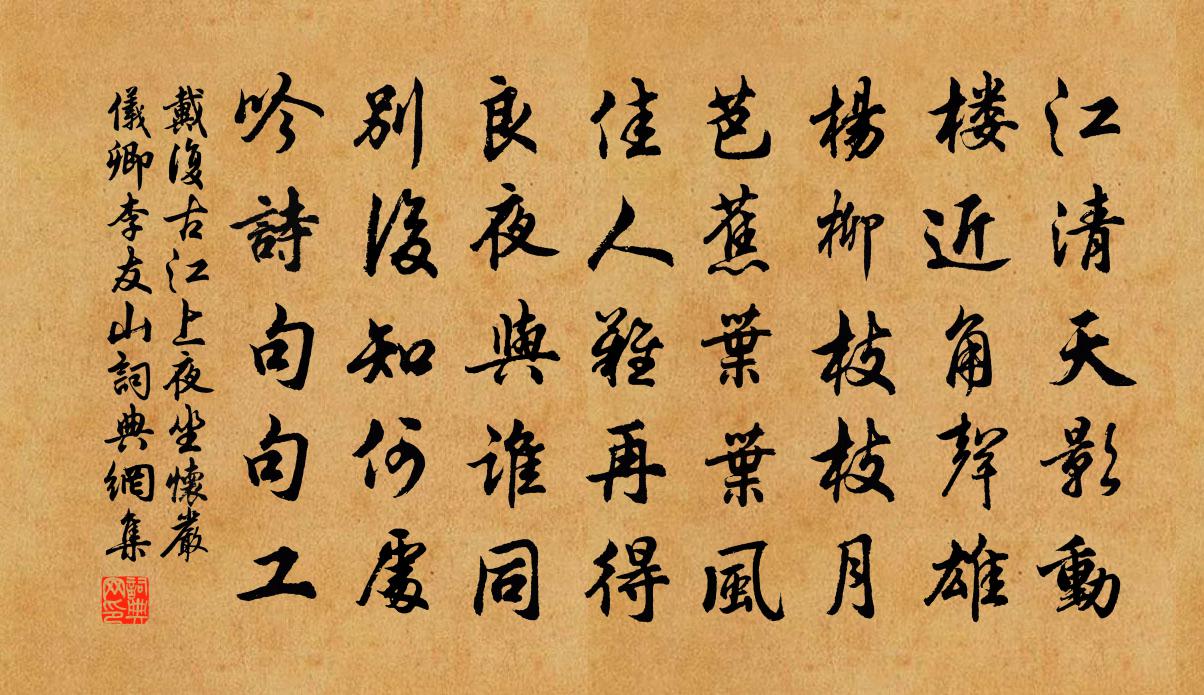 江清天影動
楼近角聲雄
楊柳枝枝月
芭蕉葉葉風
佳人難再得
良夜與誰同
別後知何處
吟詩句句工
戴復古江上夜坐懷嚴
儀卿李友山詞典網集
詞典网印